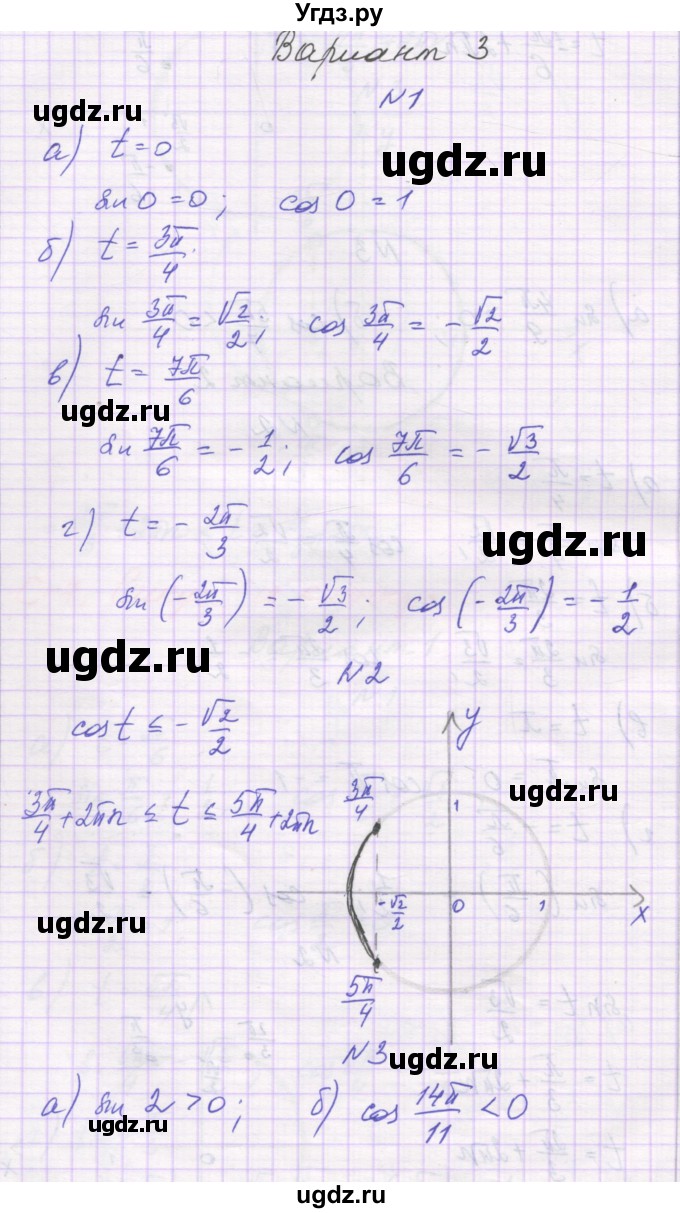 Угдз.ру
Вариант 3
ugdz.ru
N1
ugdz.ru
а) t=0
sin 0 = 0; cos 0 = 1
б) t = 3π/4
sin 3π/4 = √2/2; cos 3π/4 = - √2/2
в) t = 7π/6
ugdz.ru
sin 7π/6 = - 1/2; cos 7π/6 = - √3/2
г) t = - 2π/3
ugdz.ru
sin (- 2π/3) = - √3/2; cos (- 2π/3) = - 1/2
ugdz.ru
N2
cos t ≤ - √2/2
y
3π/4 + 2πn ≤ t ≤ 5π/4 + 2πn
3π/4
1
ugdz.ru
- √2/2
0
1
x
ugdz.ru
5π/4
N3
ugdz.ru
а) sin 2 > 0; б) cos 14π/11 < 0
ugdz.ru
ugdz.ru